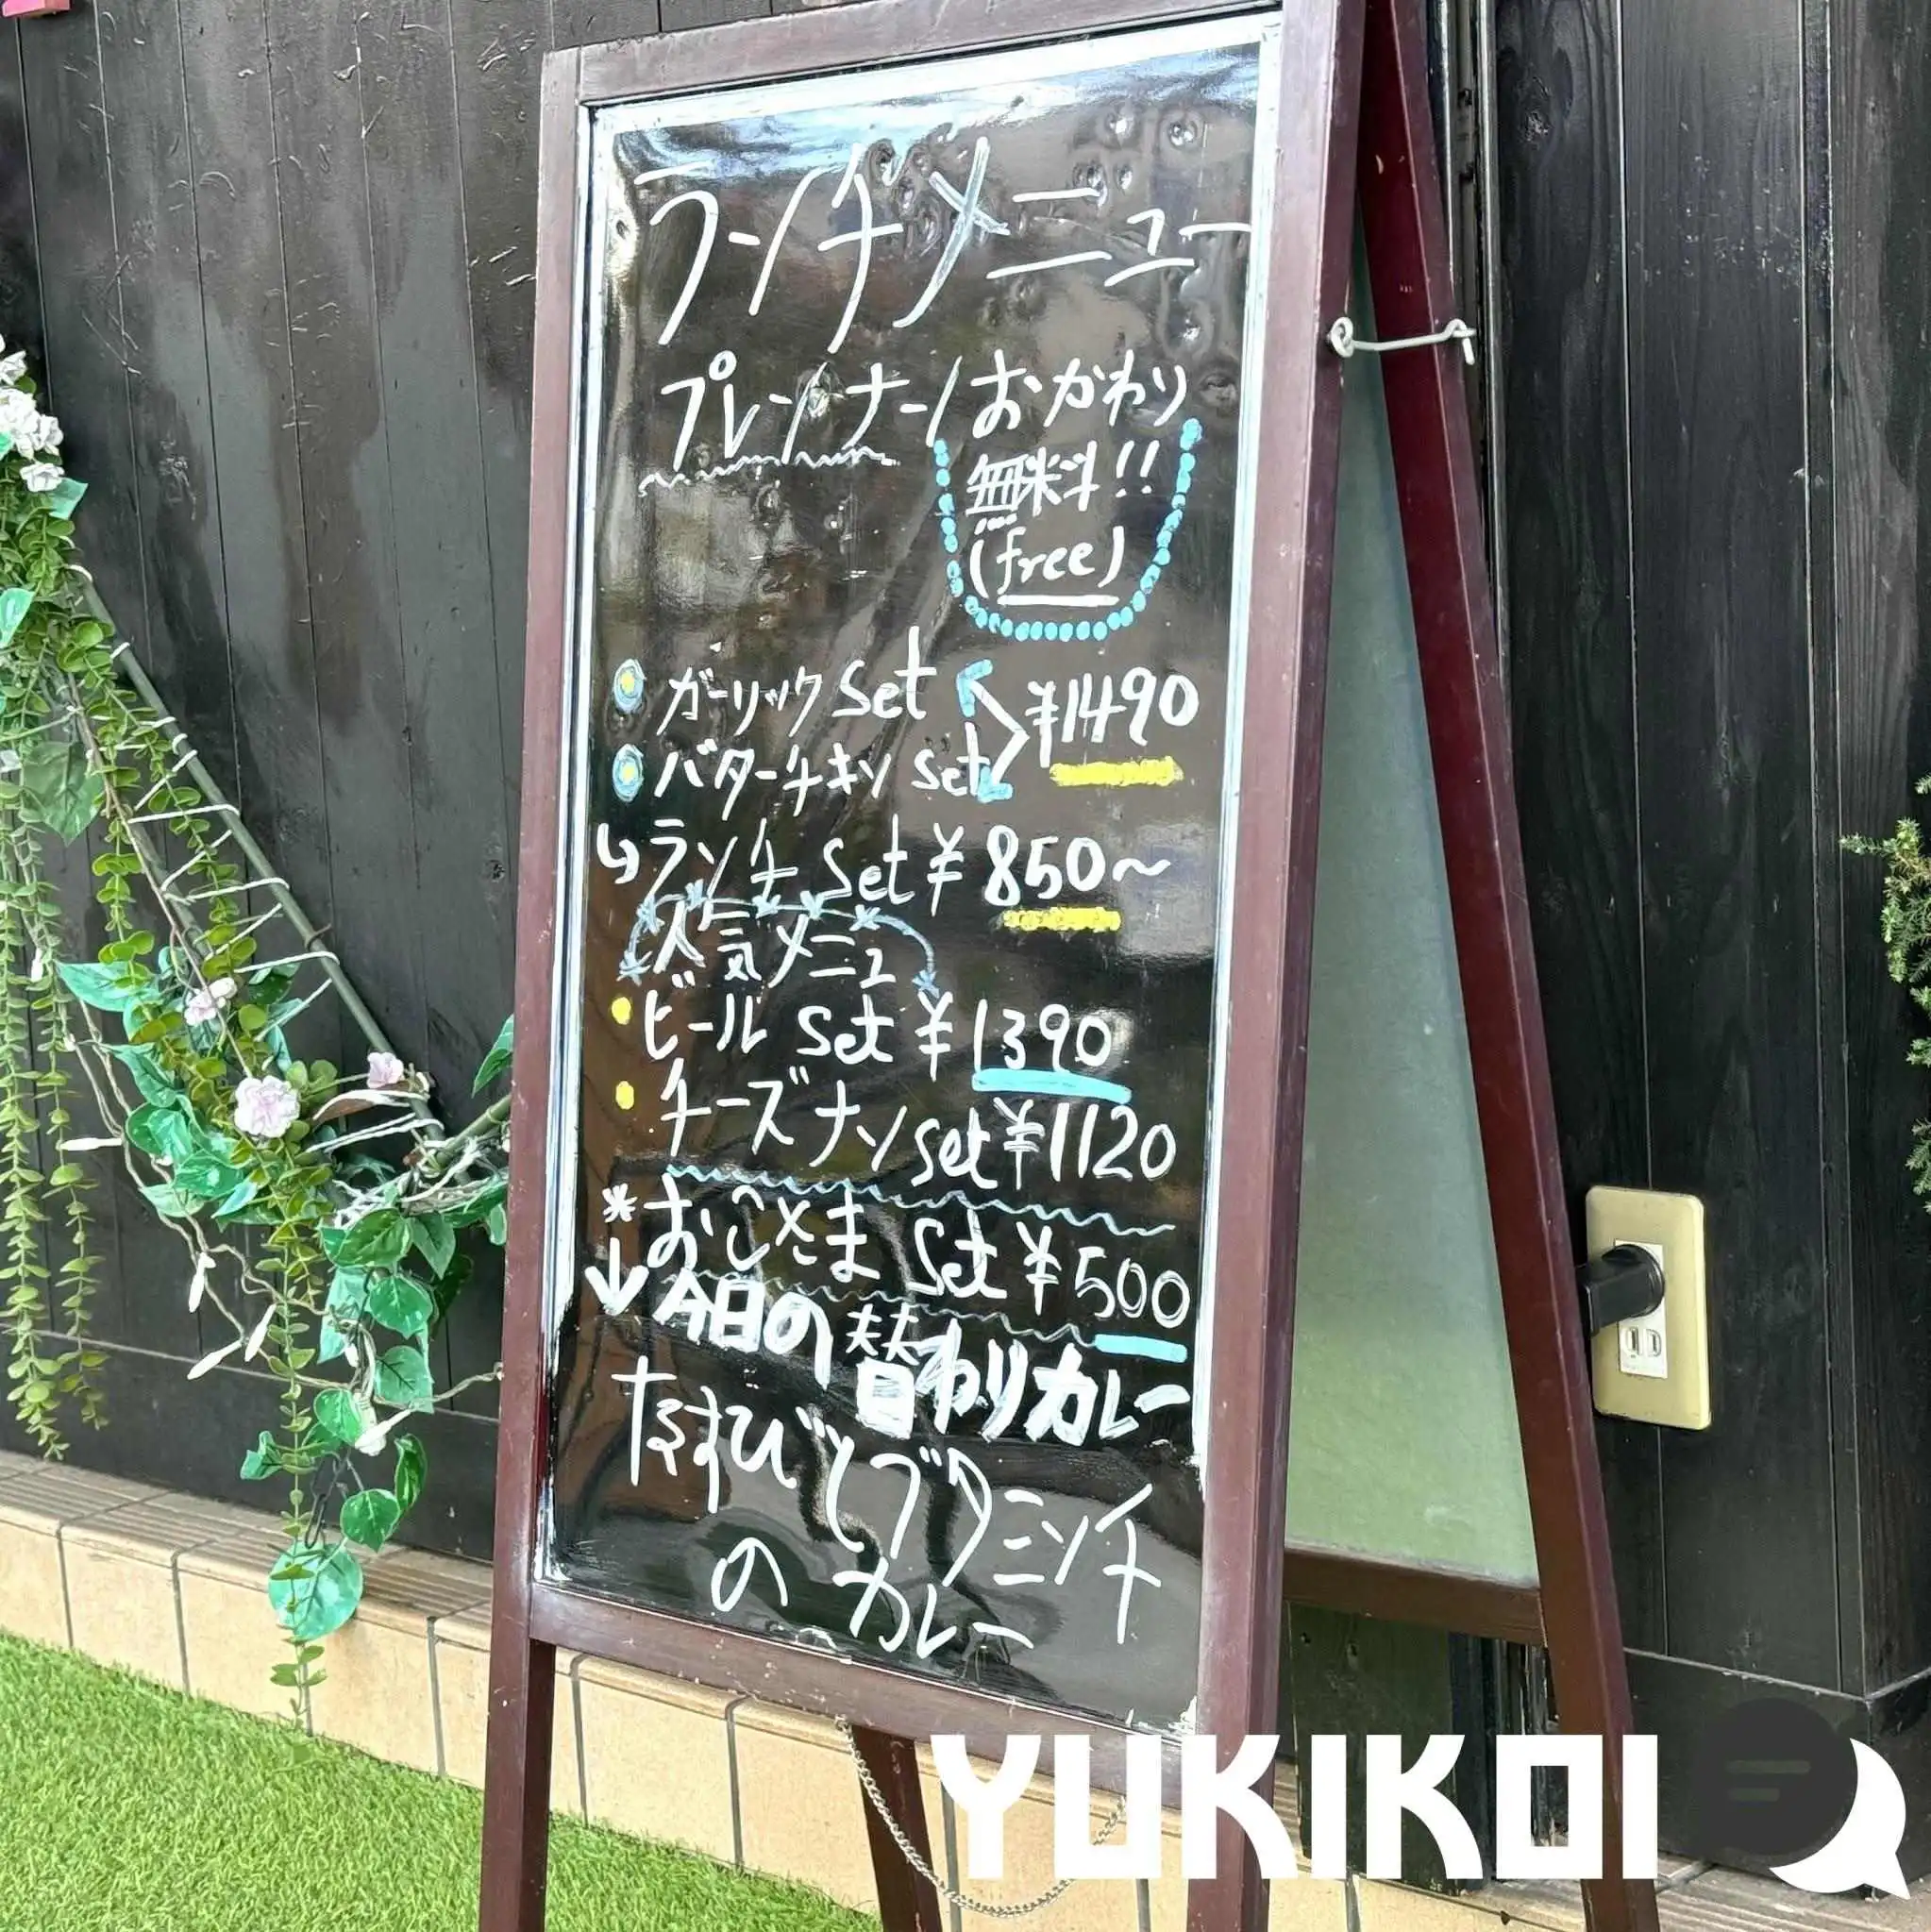 ランチメニュー
プレーンナーン
おかわり
無料!!
(free)
ガーリック set
バターチキン set
¥1490
ランチ set ¥ 850~
人気メニュ
ビール set ¥ 1390
チーズナン set ¥1120
*おこさま set ¥500
↓今日の替わりカレー
とブタミンチ
の カレー
YUKIKOI